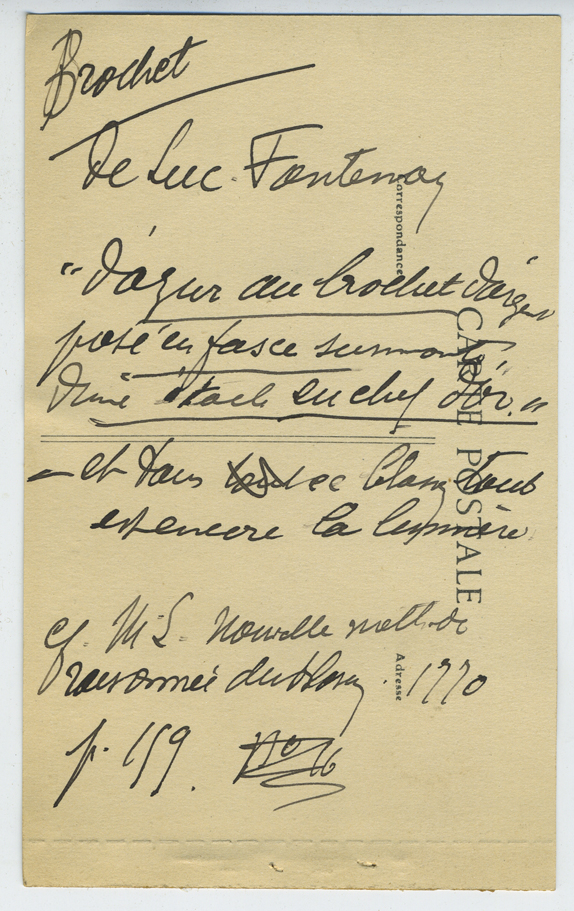 Brochet
de Luc. Fontenay
"d'azur au brochet d'argent
posé en fasce surmonté
d'une étoile en chef d'or."
- et dans ce blason tout
est encore la lumière
cf. M.L. Nouvelle méthode
raisonnée du blason. 1770
p. 159. No 16
Correspondance
CARTE POSTALE
Adresse